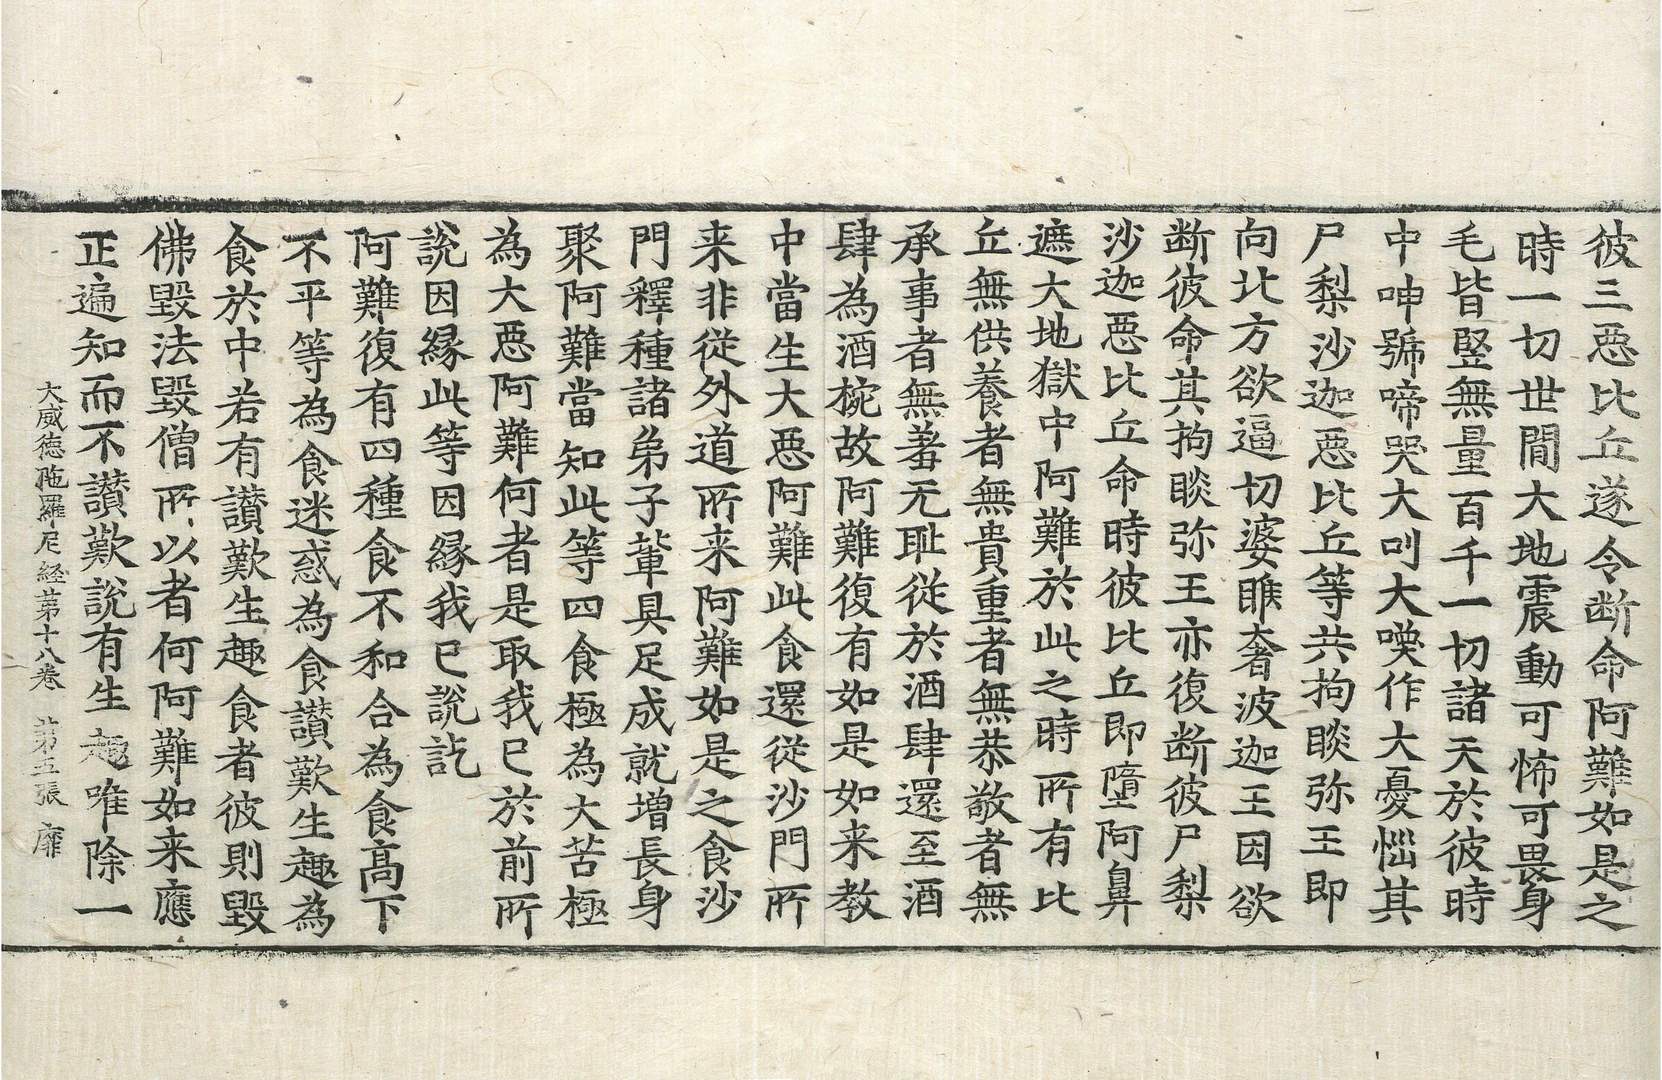 彼三惡比丘遂令断命阿難如是之
時一切世間大地震動可怖可畏身
毛皆竪無量百千一切諸天於彼時
中呻號啼哭大叫大喚作大憂惱其
尸梨沙迦惡比丘等共拘睒弥王即
向比方欲逼切婆睢奢波迦王因欲
断彼命其拘睒弥王亦復断彼尸梨
沙迦惡比丘命時彼比丘即墮阿鼻
遮大地獄中阿難於此之時所有比
丘無供養者無貴重者無恭敬者無
承事者無羞无耻從於酒肆還至酒
肆為酒椀故阿難復有如是如来教
中當生大惡阿難此食還従沙門所
来非従外道所来阿難如是之食沙
門釋種諸弟子輩具足成就增長身
聚阿難當知此等四食極為大苦極
為大惡阿難何者是取我已於前所
說因縁此等因縁我已說訖
阿難復有四種食不和合為食高下
不平等為食迷惑為食讃歎生趣為
食於中若有讃歎生趣食者彼則毀
佛毀法毀僧所以者何阿難如来應
正遍知而不讃歎說有生趣唯除一
大威德陁羅尼経第十八卷 第五張 靡